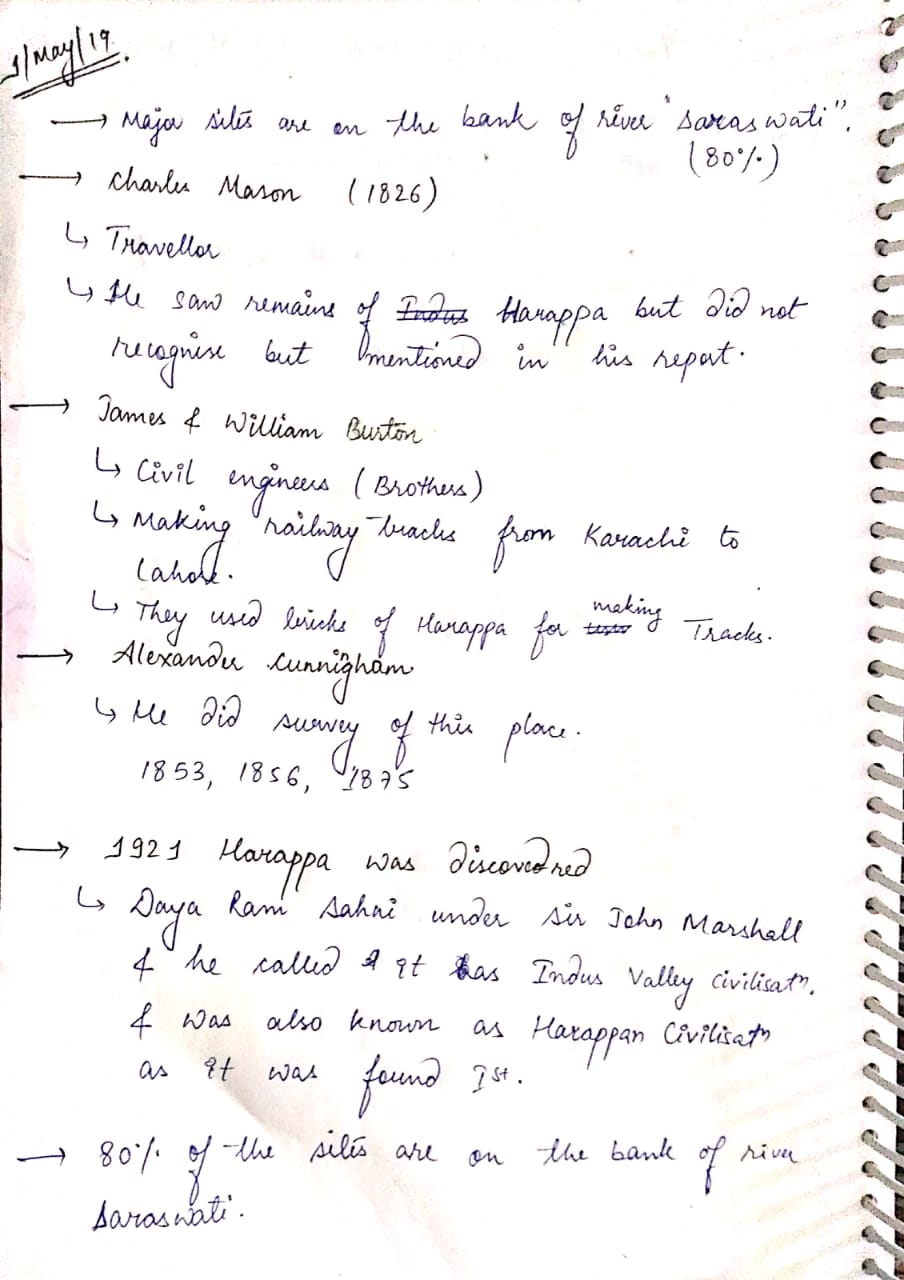 1/May/19.
→ Major sites are on the bank of river "Saraswati".
(80%)
→ Charles Mason (1826)
↳ Travellor
↳ He saw remains of Indus Harappa but did not
recognise but mentioned in his report.
→ James & William Burton
↳ Civil engineers (Brothers)
↳ Making railway tracks from Karachi to
Lahore.
↳ They used bricks of Harappa for making Tracks.
→ Alexander Cunnigham
↳ He did survey of this place.
1853, 1856, 1875
→ 1921 Harappa was discovered
↳ Daya Ram Sahni under Sir John Marshall
& he called it as Indus Valley Civilisatn.
& was also known as Harappan Civilisatn
as it was found Ist.
→ 80% of the sites are on the bank of river
Saraswati.